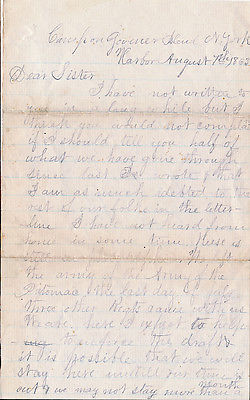 Camp on Govener Iland N. York
Harbor August 7th/1863
Dear Sister
I have not written to
you in a long while but I
think you would not complain
if I should tell you half of
what we have gone through
sence last I wrote & that
I am as much indebted to the
rest of our folks in the letter
line I have not heard from
home in some time
the army of the Army of the
Potomac the last day of July
three other Regts came with us
We are here I expect to help
to enforce the draft
it is possible that we will
stay here untill our time is
out & we may not stay more than a
month